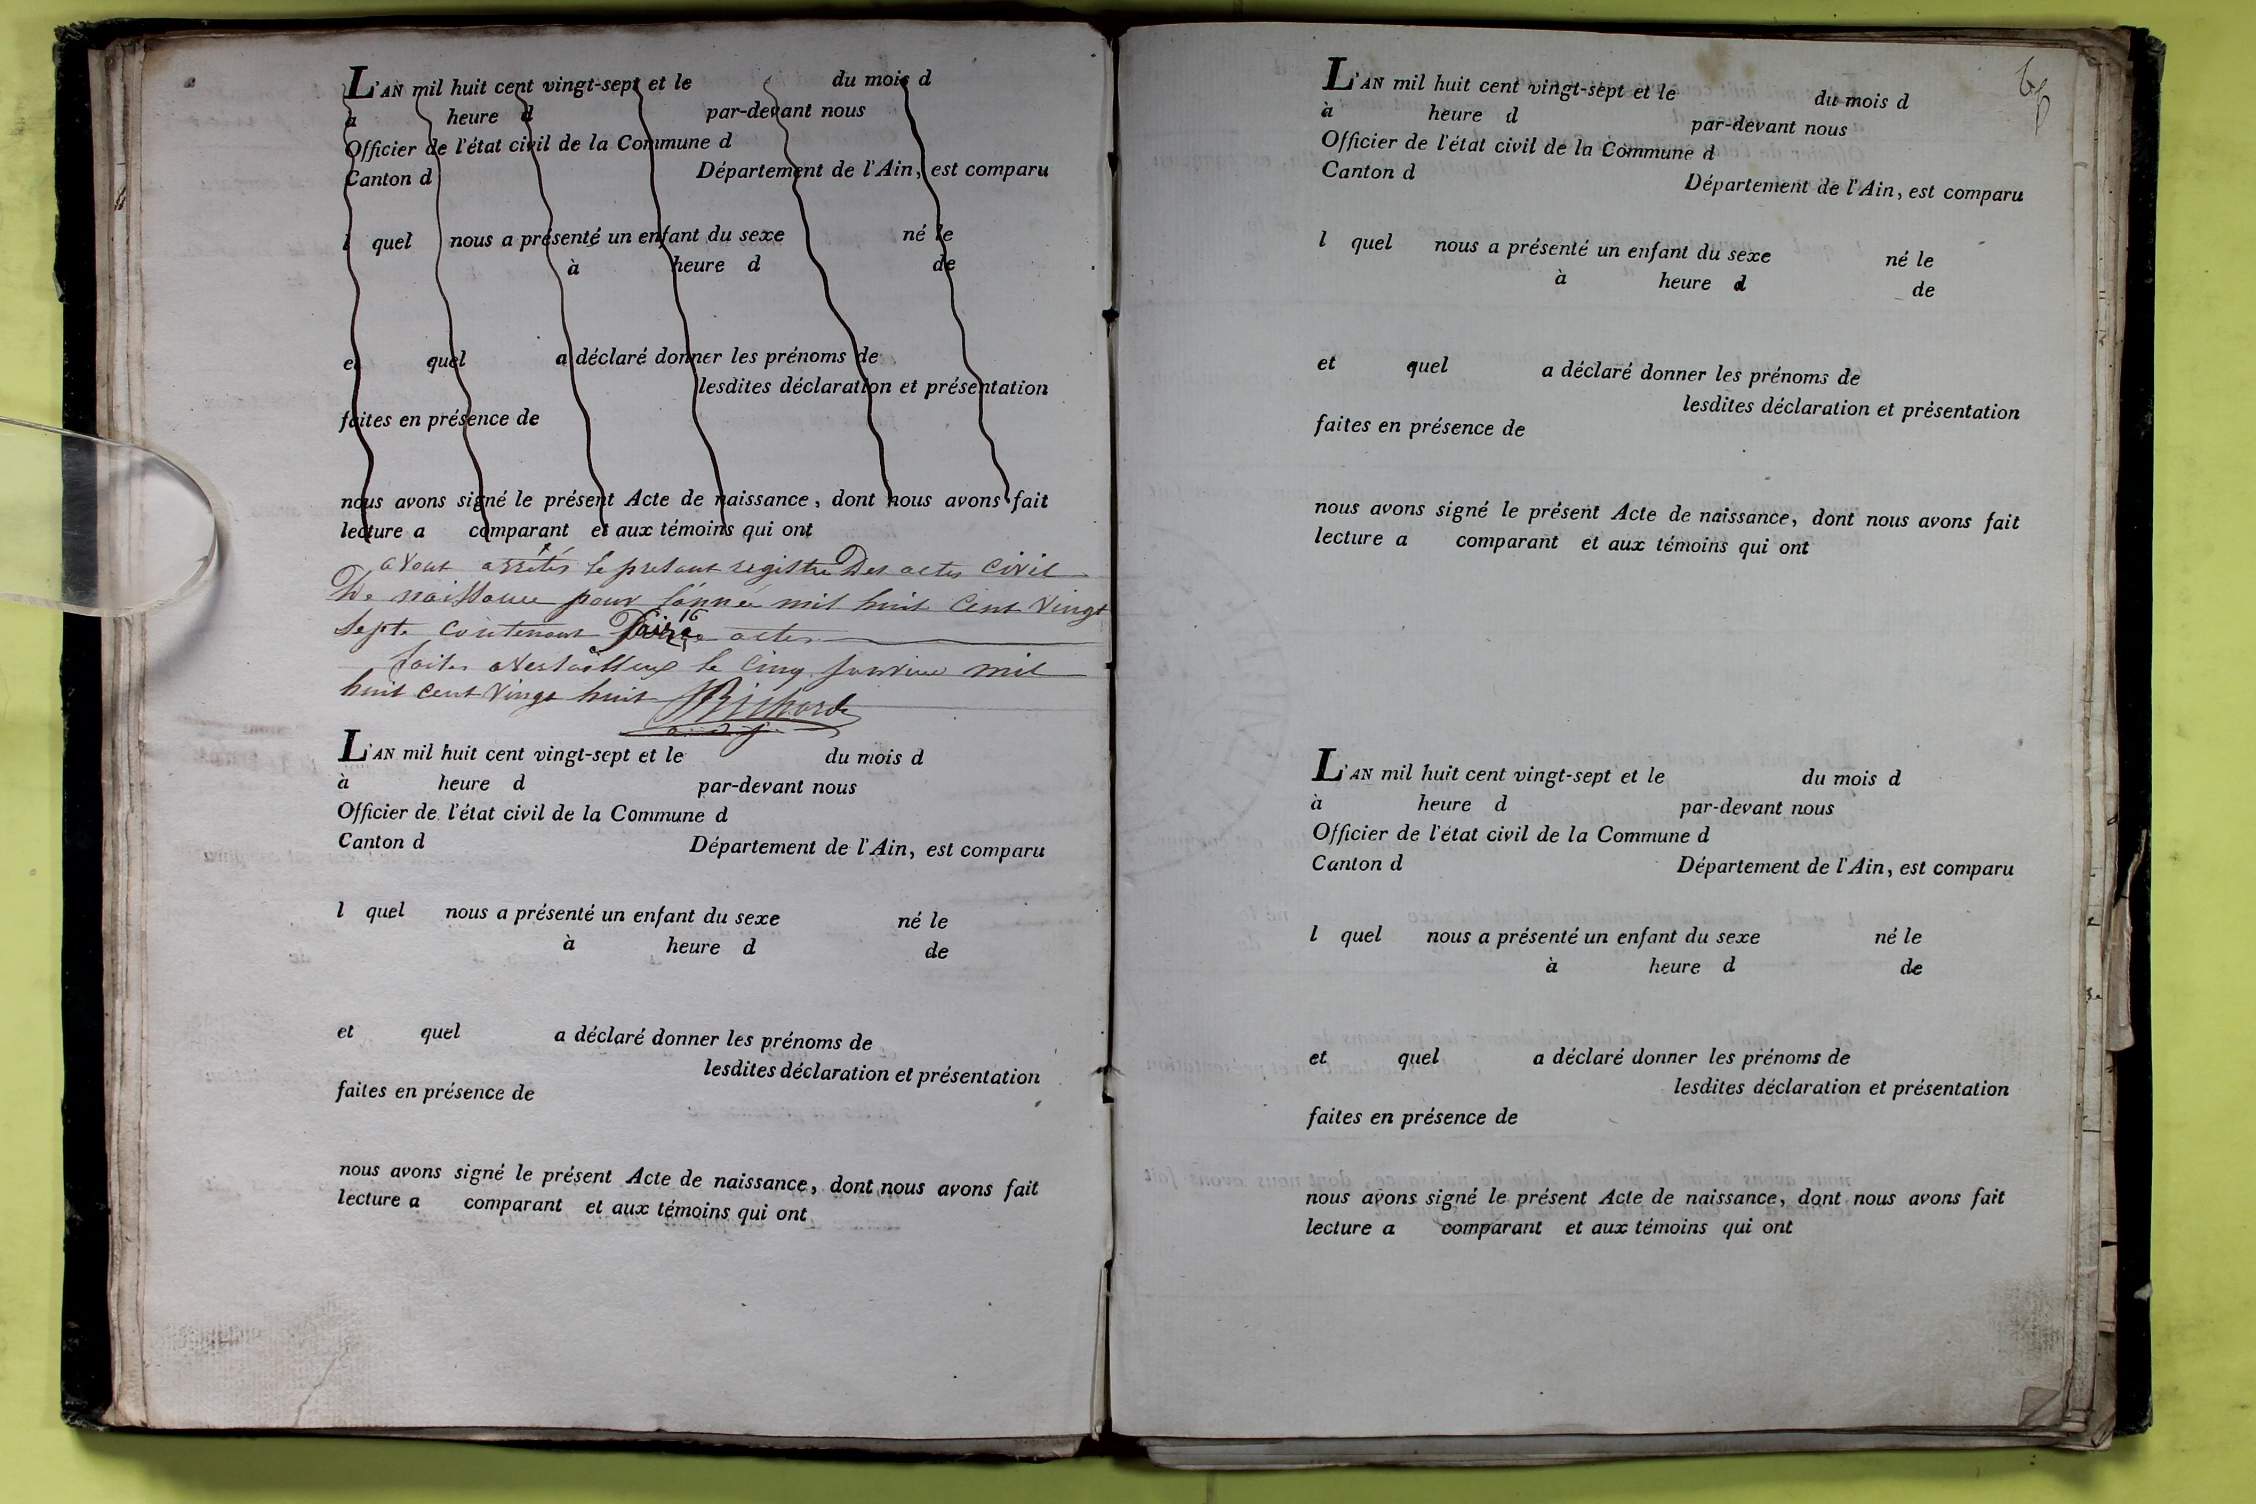 L'AN mil huit cent vingt-sept et le du mois d
à heure d par-devant nous
Officier de l'état civil de la Commune d
Canton d Département de l'Ain, est comparu
l quel nous a présenté un enfant du sexe né le
à heure d de
et quel a déclaré donner les prénoms de
lesdites déclaration et présentation
faites en présence de
nous avons signé le présent Acte de naissance, dont nous avons fait
lecture a comparant et aux témoins qui ont
avont arrêtés le presant registre Des actes civil
De naissance pour l'année mil huit cent vingt
sept. contenant 16 actes
faites le cinq janvier mil
huit cent vingt huit Richard
a. d. j.
L'AN mil huit cent vingt-sept et le du mois d
à heure d par-devant nous
Officier de l'état civil de la Commune d
Canton d Département de l'Ain, est comparu
l quel nous a présenté un enfant du sexe né le
à heure d de
et quel a déclaré donner les prénoms de
lesdites déclaration et présentation
faites en présence de
nous avons signé le présent Acte de naissance, dont nous avons fait
lecture a comparant et aux témoins qui ont
L'AN mil huit cent vingt-sept et le du mois d
à heure d par-devant nous
Officier de l'état civil de la Commune d
Canton d Département de l'Ain, est comparu
l quel nous a présenté un enfant du sexe né le
à heure d de
et quel a déclaré donner les prénoms de
lesdites déclaration et présentation
faites en présence de
nous avons signé le présent Acte de naissance, dont nous avons fait
lecture a comparant et aux témoins qui ont
L'AN mil huit cent vingt-sept et le du mois d
à heure d par-devant nous
Officier de l'état civil de la Commune d
Canton d Département de l'Ain, est comparu
l quel nous a présenté un enfant du sexe né le
à heure d de
et quel a déclaré donner les prénoms de
lesdites déclaration et présentation
faites en présence de
nous avons signé le présent Acte de naissance, dont nous avons fait
lecture a comparant et aux témoins qui ont